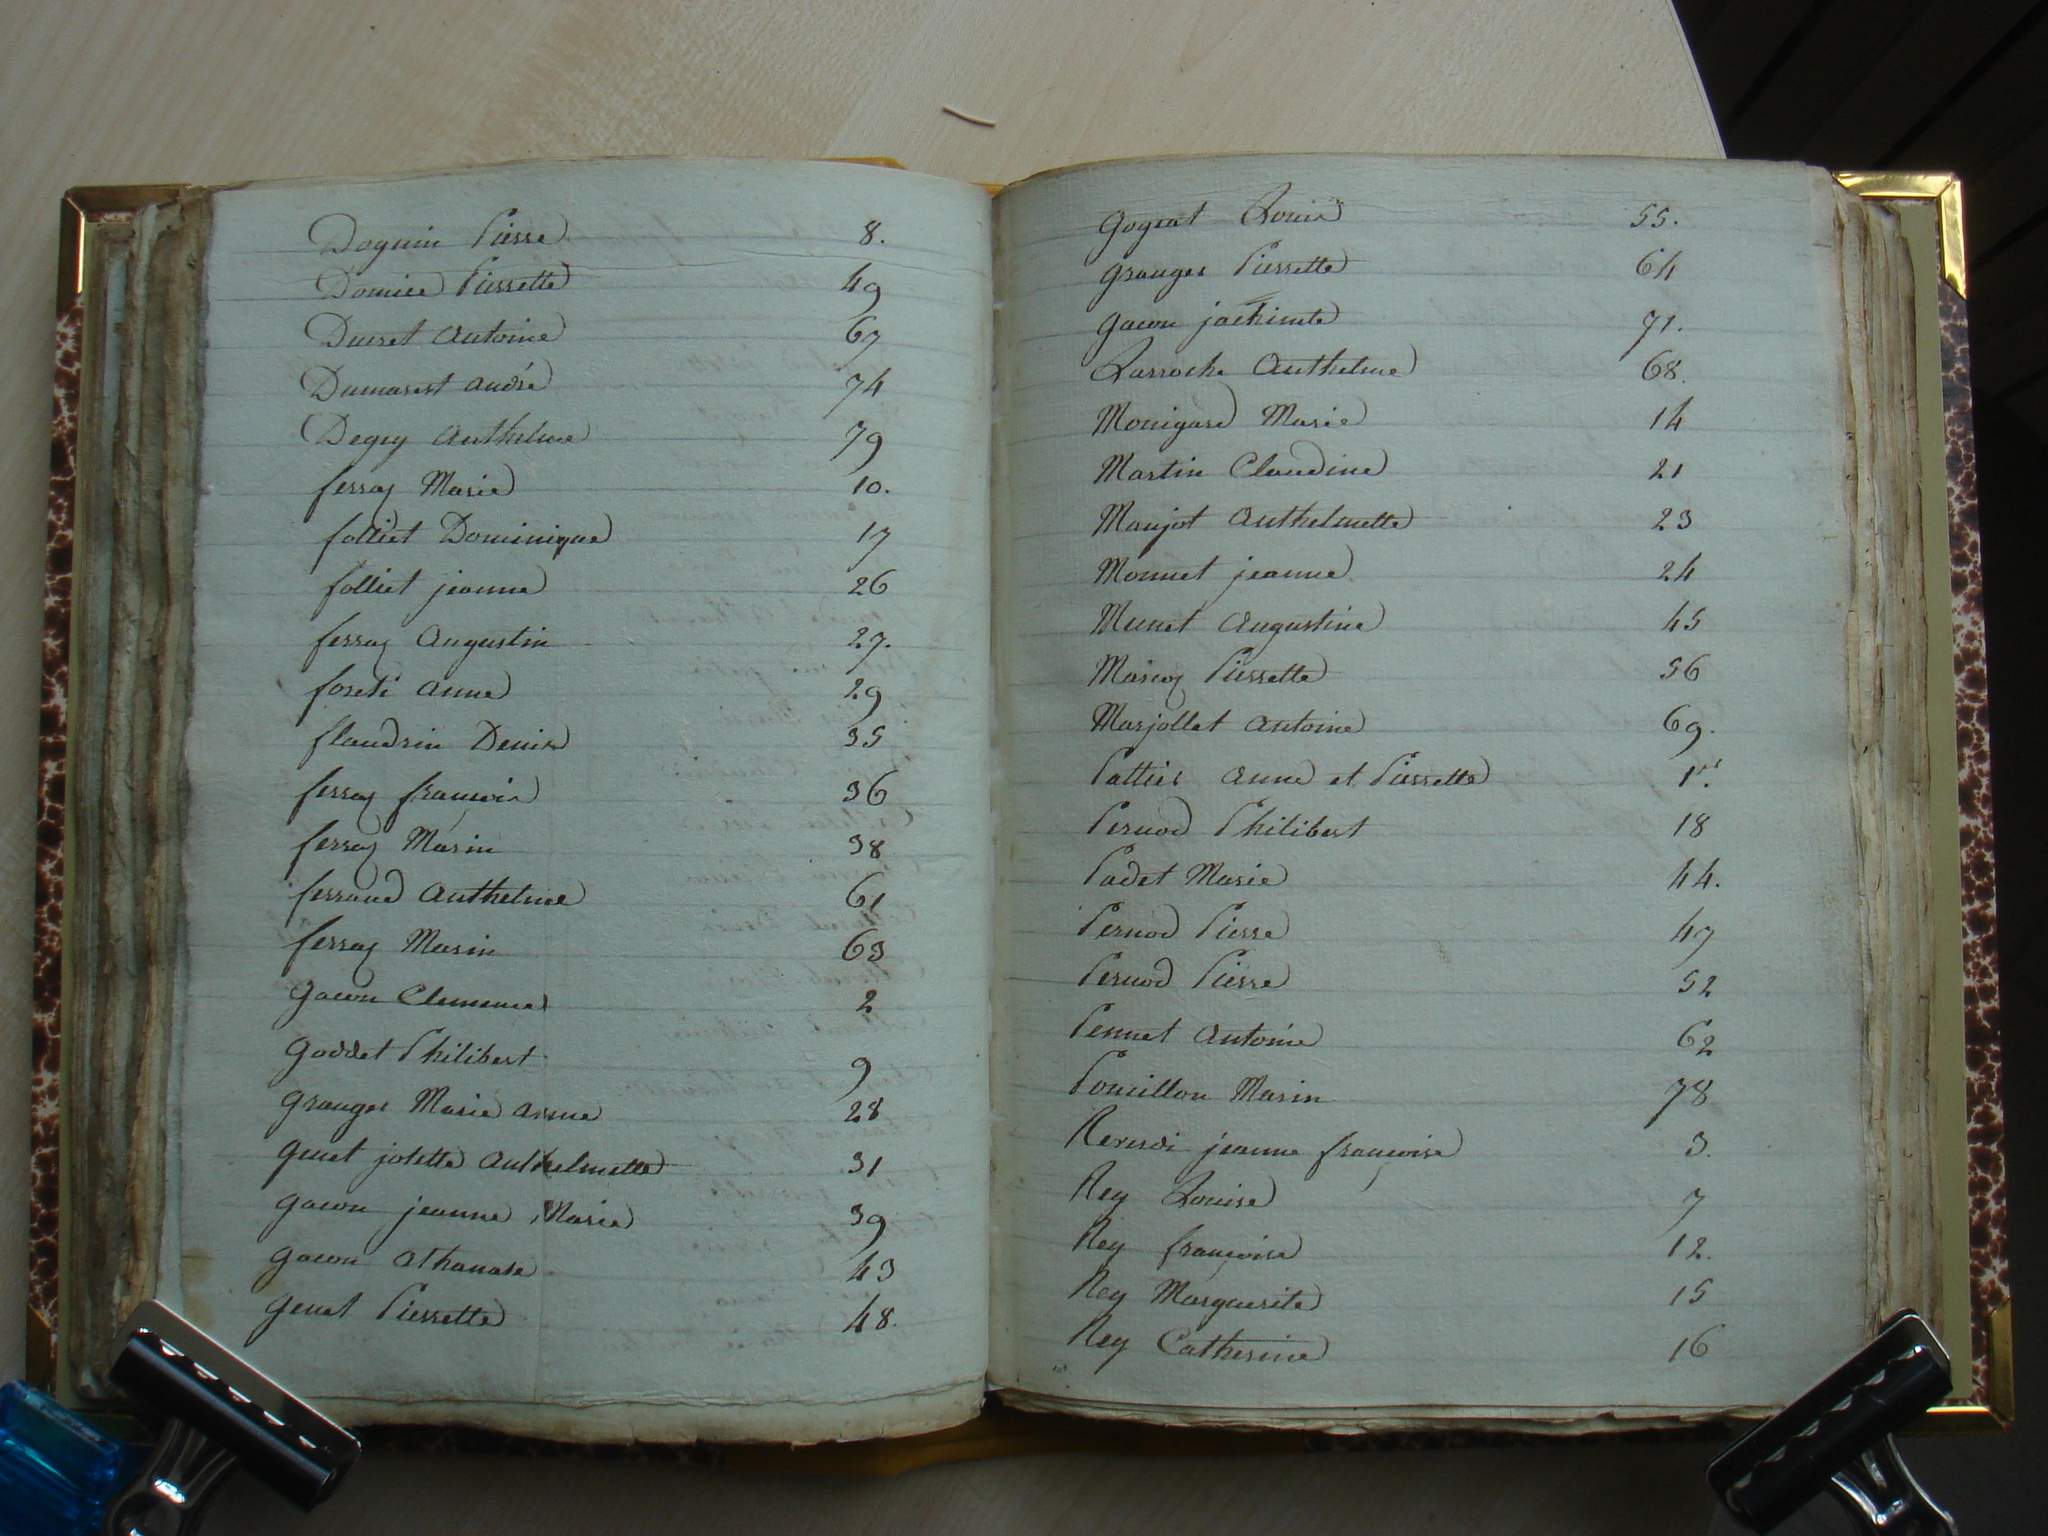 Doguin Pierre 8.
Domice Pierrette 49
Dueret Antoine 67
Dumarest André 74
Degey Anthelme 79
ferroz Marie 10.
folliet Dominique 17
folliet jeanne 26
ferroz Augustin 27.
foreti Anne 29
flaudrin Denis 35
ferroz françois 36
ferroz Marin 38
ferrand Anthelme 61
ferroz Marin 63
gacon Clemence 2
goddet Philibert 9
granger Marie Anne 28
genet josette Anthelmette 31
gacon jeanne Marie 39
gacon Athanase 43
genet Pierrette 48.
gogeat Louis 55.
granger Pierrette 64
gacon jachinte 71.
Larroche Anthelme 68.
Monigard Marie 14
Martin Claudine 21
Manjot Anthelmette 23
Monnet jeanne 24
Munet Augustine 45
Maicoz Pierrette 56
Marjollet Antoine 69.
Pattier Anne et Pierrette 1er
Pernod Philibert 18
Padet Marie 44.
Pernod Pierre 47
Pernod Pierre 52
Pernet Antoine 62
Pomillon Marin 78
Reverdi jeanne françoise 3.
Rey Louise 7
Rey françoise 12.
Rey Marguerite 15
Rey Catherine 16